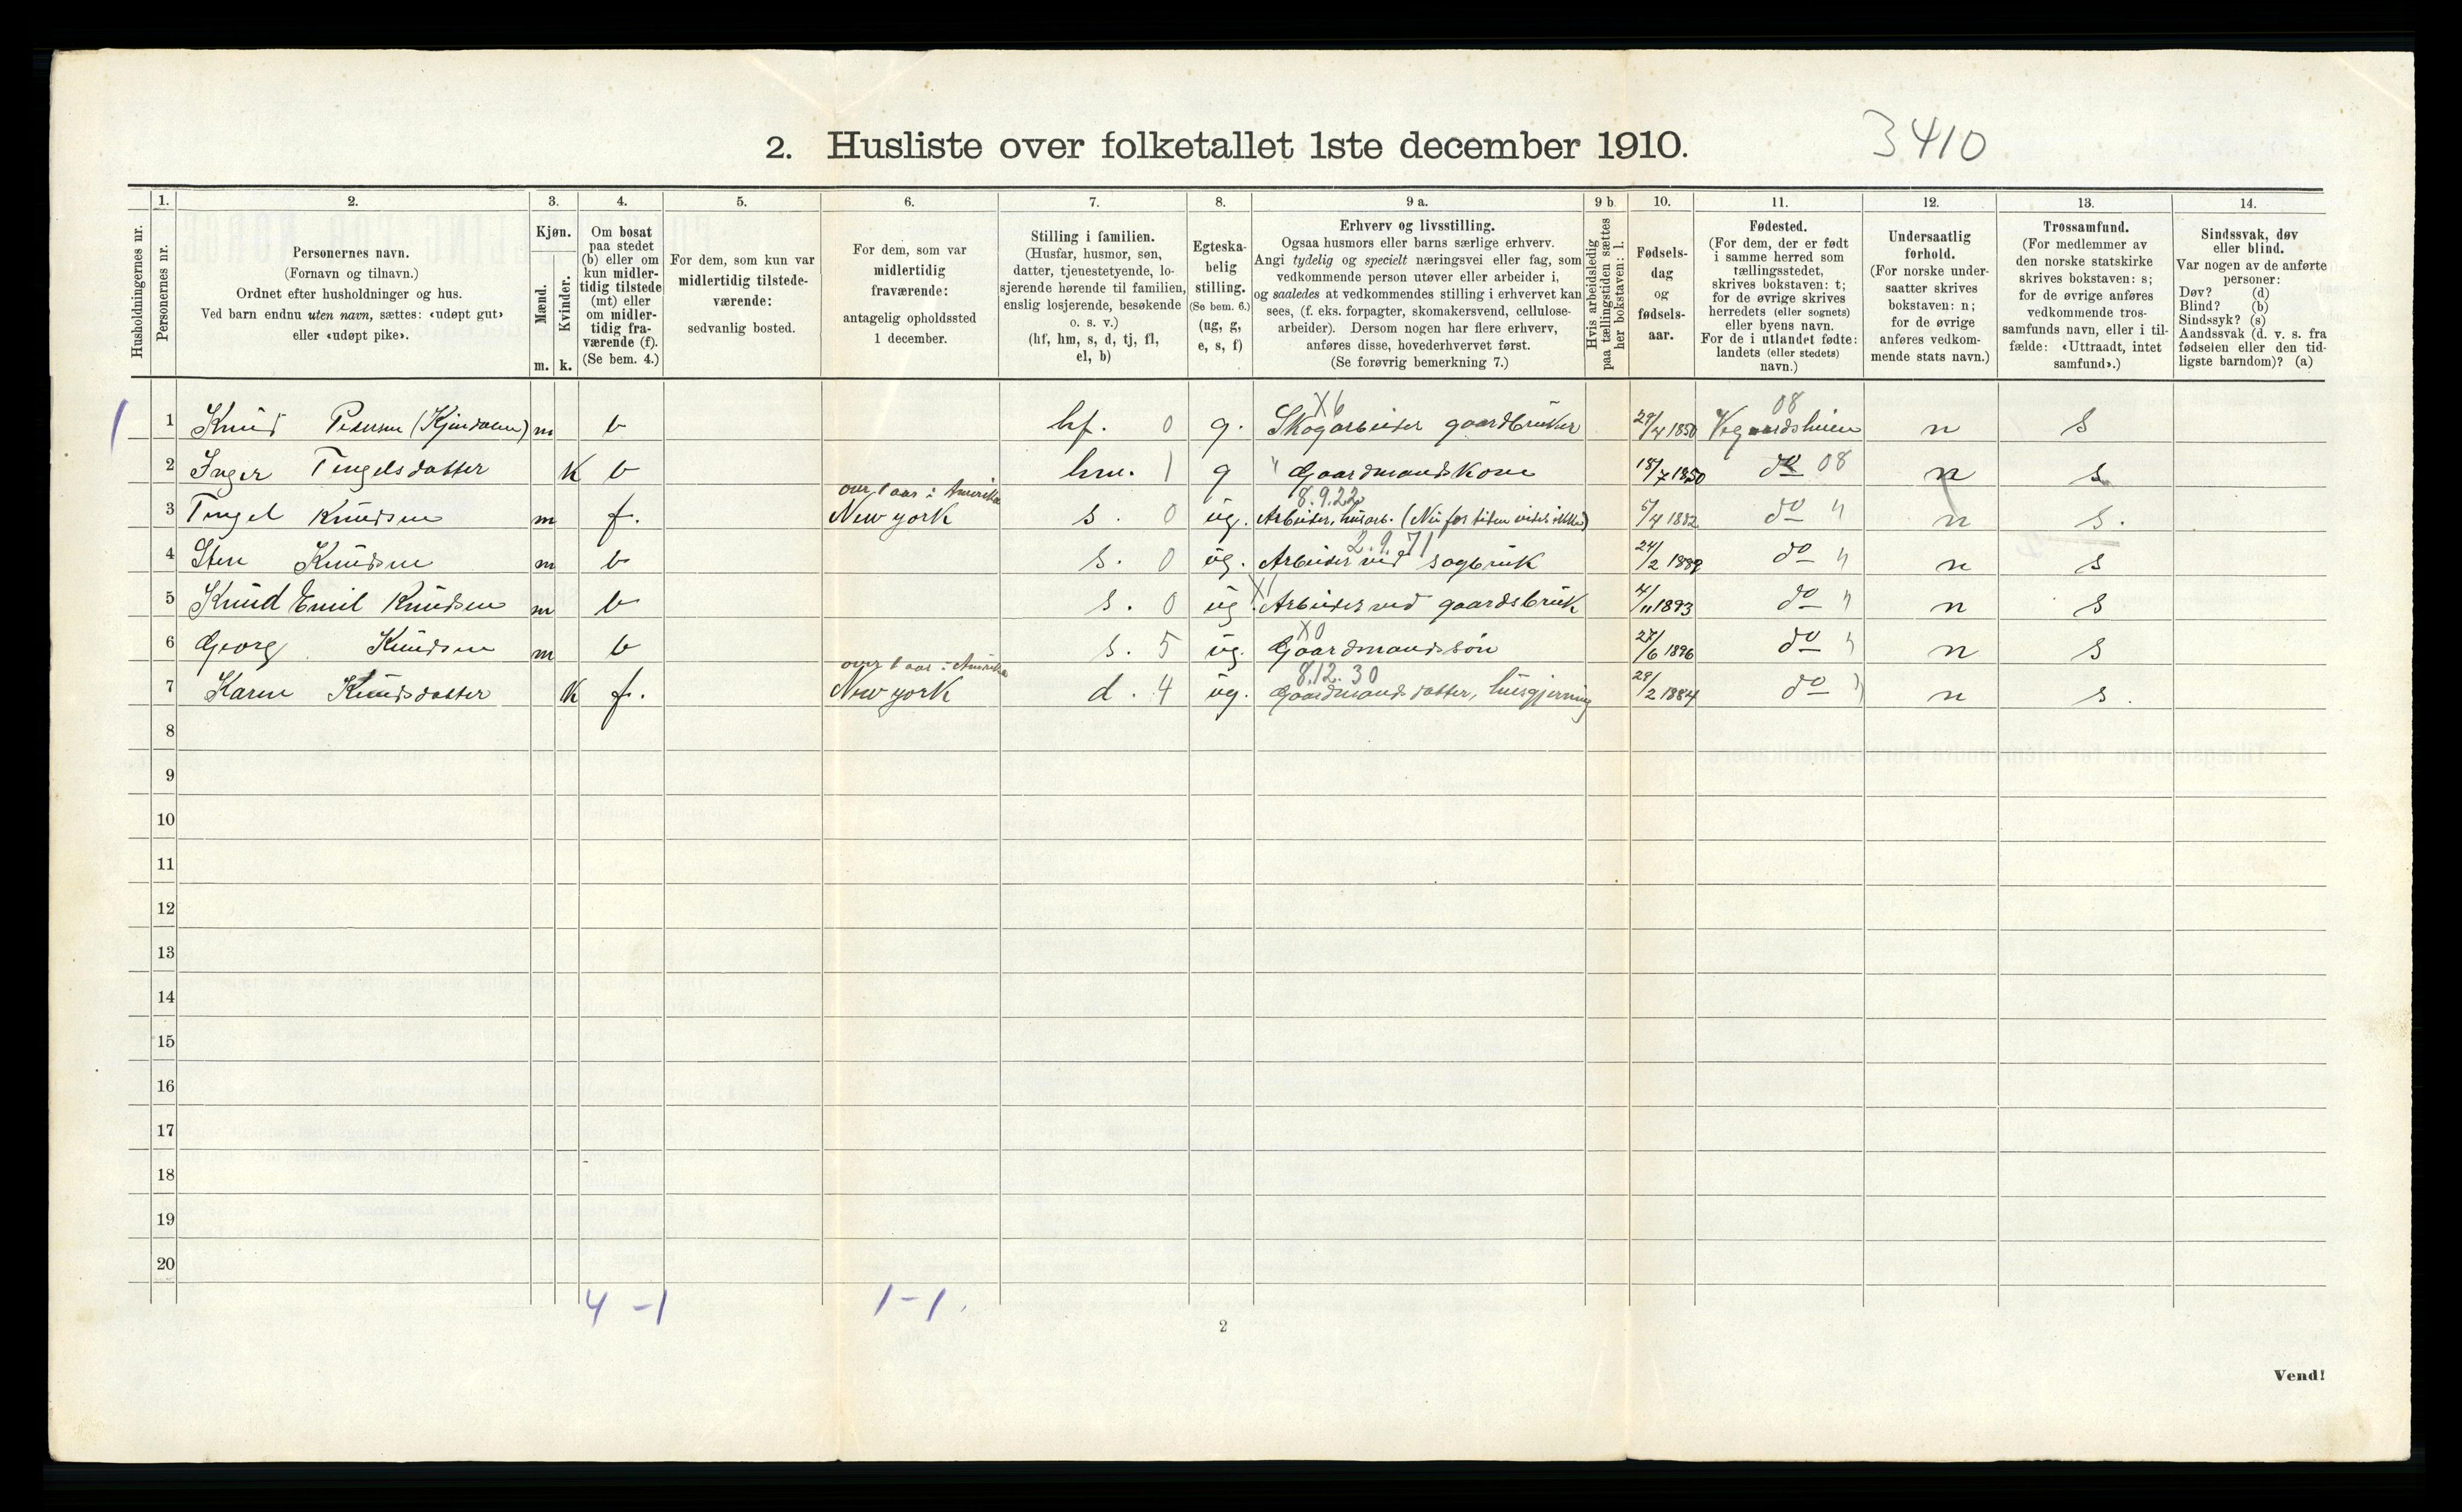 2. Husliste over folketallet 1ste december 1910.
3410
Husholdningernes nr.
1. Personernes nr.
2. Personernes navn.
(Fornavn og tilnavn.)
Ordnet efter husholdninger og hus.
Ved barn endnu uten navn, sættes: «udøpt gut»
eller «udøpt pike».
3. Kjøn.
Mænd. m.
Kvinder. k.
4. Om bosat
paa stedet
(b) eller om
kun midler-
tidig tilstede
(mt) eller
om midler-
tidig fra-
værende (f).
(Se bem. 4.)
5. For dem, som kun var
midlertidig tilstede-
værende:
sedvanlig bosted.
6. For dem, som var
midlertidig
fraværende:
antagelig opholdssted
1 december.
7. Stilling i familien.
(Husfar, husmor, søn,
datter, tjenestetyende, lo-
sjerende hørende til familien,
enslig losjerende, besøkende
o. s. v.)
(hf, hm, s, d, tj, fl,
el, b)
8. Egteska-
belig
stilling.
(Se bem. 6.)
(ug, g,
e, s, f)
9 a. Erhverv og livsstilling.
Ogsaa husmors eller barns særlige erhverv.
Angi tydelig og specielt næringsvei eller fag, som
vedkommende person utøver eller arbeider i,
og saaledes at vedkommendes stilling i erhvervet kan
sees, (f. eks. forpagter, skomakersvend, cellulose-
arbeider). Dersom nogen har flere erhverv,
anføres disse, hovederhvervet først.
(Se forøvrig bemerkning 7.)
9 b. Hvis arbeidsledig
paa tællingstiden sættes
her bokstaven: l.
10. Fødsels-
dag
og
fødsels-
aar.
11. Fødested.
(For dem, der er født
i samme herred som
tællingsstedet,
skrives bokstaven: t;
for de øvrige skrives
herredets (eller sognets)
eller byens navn.
For de i utlandet fødte:
landets (eller stedets)
navn.)
12. Undersaatlig
forhold.
(For norske under-
saatter skrives
bokstaven: n;
for de øvrige
anføres vedkom-
mende stats navn.)
13. Trossamfund.
(For medlemmer av
den norske statskirke
skrives bokstaven: s;
for de øvrige anføres
vedkommende tros-
samfunds navn, eller i til-
fælde: «Uttraadt, intet
samfund».)
14. Sindssvak, døv
eller blind.
Var nogen av de anførte
personer:
Døv? (d)
Blind? (b)
Sindssyk? (s)
Aandssvak (d. v. s. fra
fødselen eller den tid-
ligste barndom)? (a)
X6 08
1 1 Knud Pedersen (Kjendalen) m b hf. 0 g. Skogarbeider gaardbruker 29/4 1850 Vegaardsheien n s
2 Inger Tengelsdatter K b hm. 1 g " Gaardmandskone 18/7 1850 do 08 n s
over 1 aar i Amerika 8.9.22
3 Tengel Knudsen m f. New york s. 0 ug. Arbeider, husarb. (Nu for tiden vides ikke) 5/4 1882 do " n s.
2.9.71
4 Sten Knudsen m b s. 0 ug. Arbeider ved sagbruk 24/2 1889 do " n s
X1
5 Knud Emil Knudsen m b s. 0 ug. Arbeider ved gaardsbruk 4/11 1893 do " n s
X0
6 Georg Knudsen m b s. 5 ug. Gaardmandssøn 27/6 1896 do " n s
over 1 aar i Amerika 8.12.30
7 Karen Knudsdatter K f. New york d. 4 ug. Gaardmands datter, husgjerning 29/2 1884 do " n s.
8
9
10
11
12
13
14
15
16
17
18
19
20
4 - 1 1 - 1.
2
Vend!